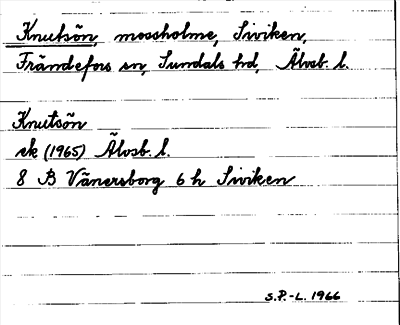 Knutsön, mossholme, Siviken,
Frändefors sn, Sundals hd, Älvsb. l.
Knutsön
ek (1965) Älvsb. l.
8 B Vänersborg 6 h Siviken
S.P.-L. 1966